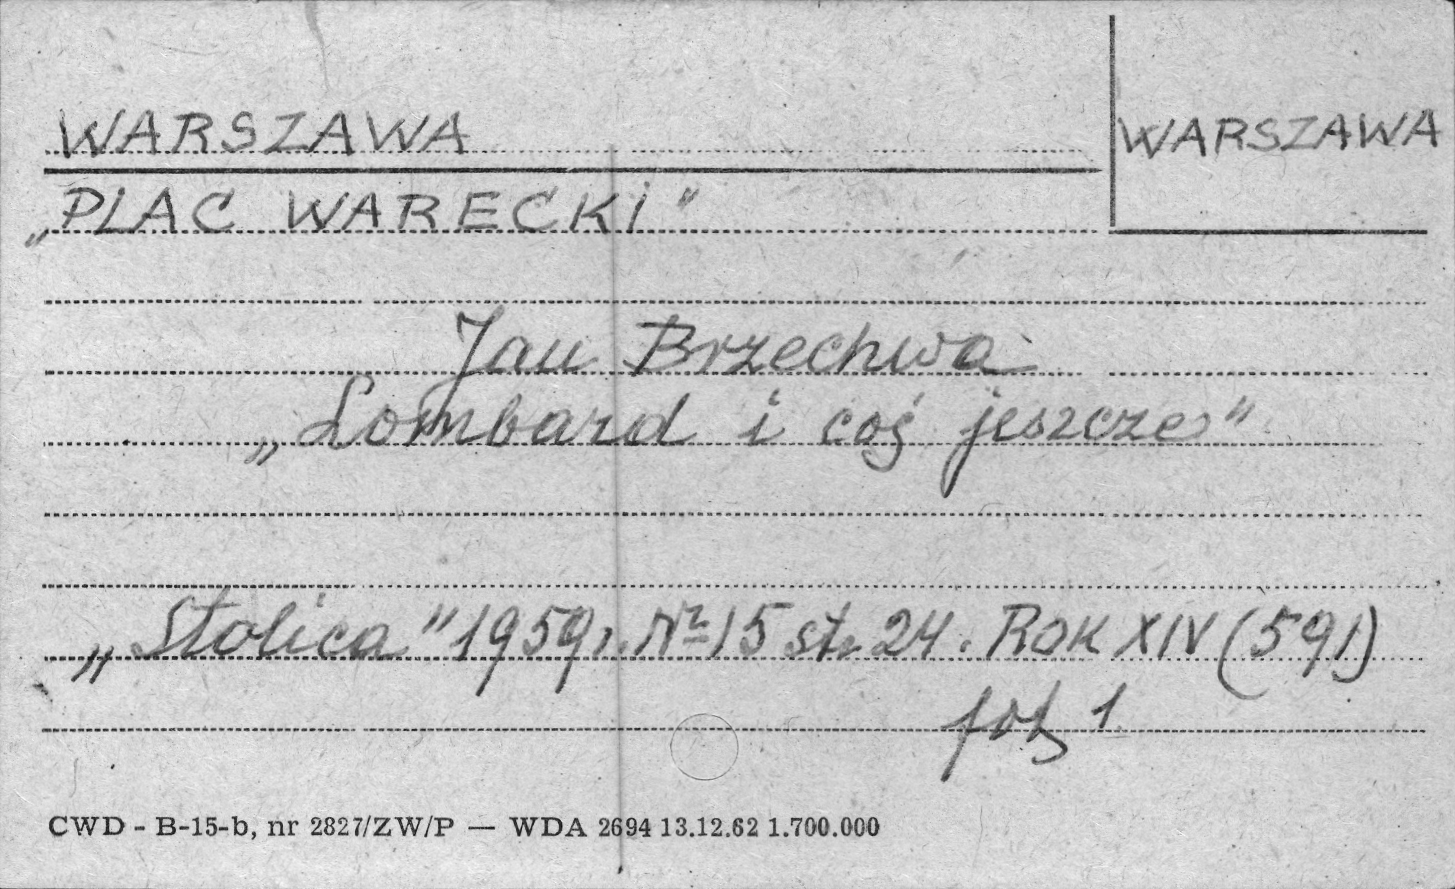 WARSZAWA
WARSZAWA
„PLAC WARECKI"
Jan Brzechwa
„Lombard i coś jeszcze"
„Stolica" 1959 r. Nr 15 str 24. ROK XIV (591)
fot. 1
CWD - B-15-b, nr 2827/ZW/P — WDA 2694 13.12.62 1.700.000